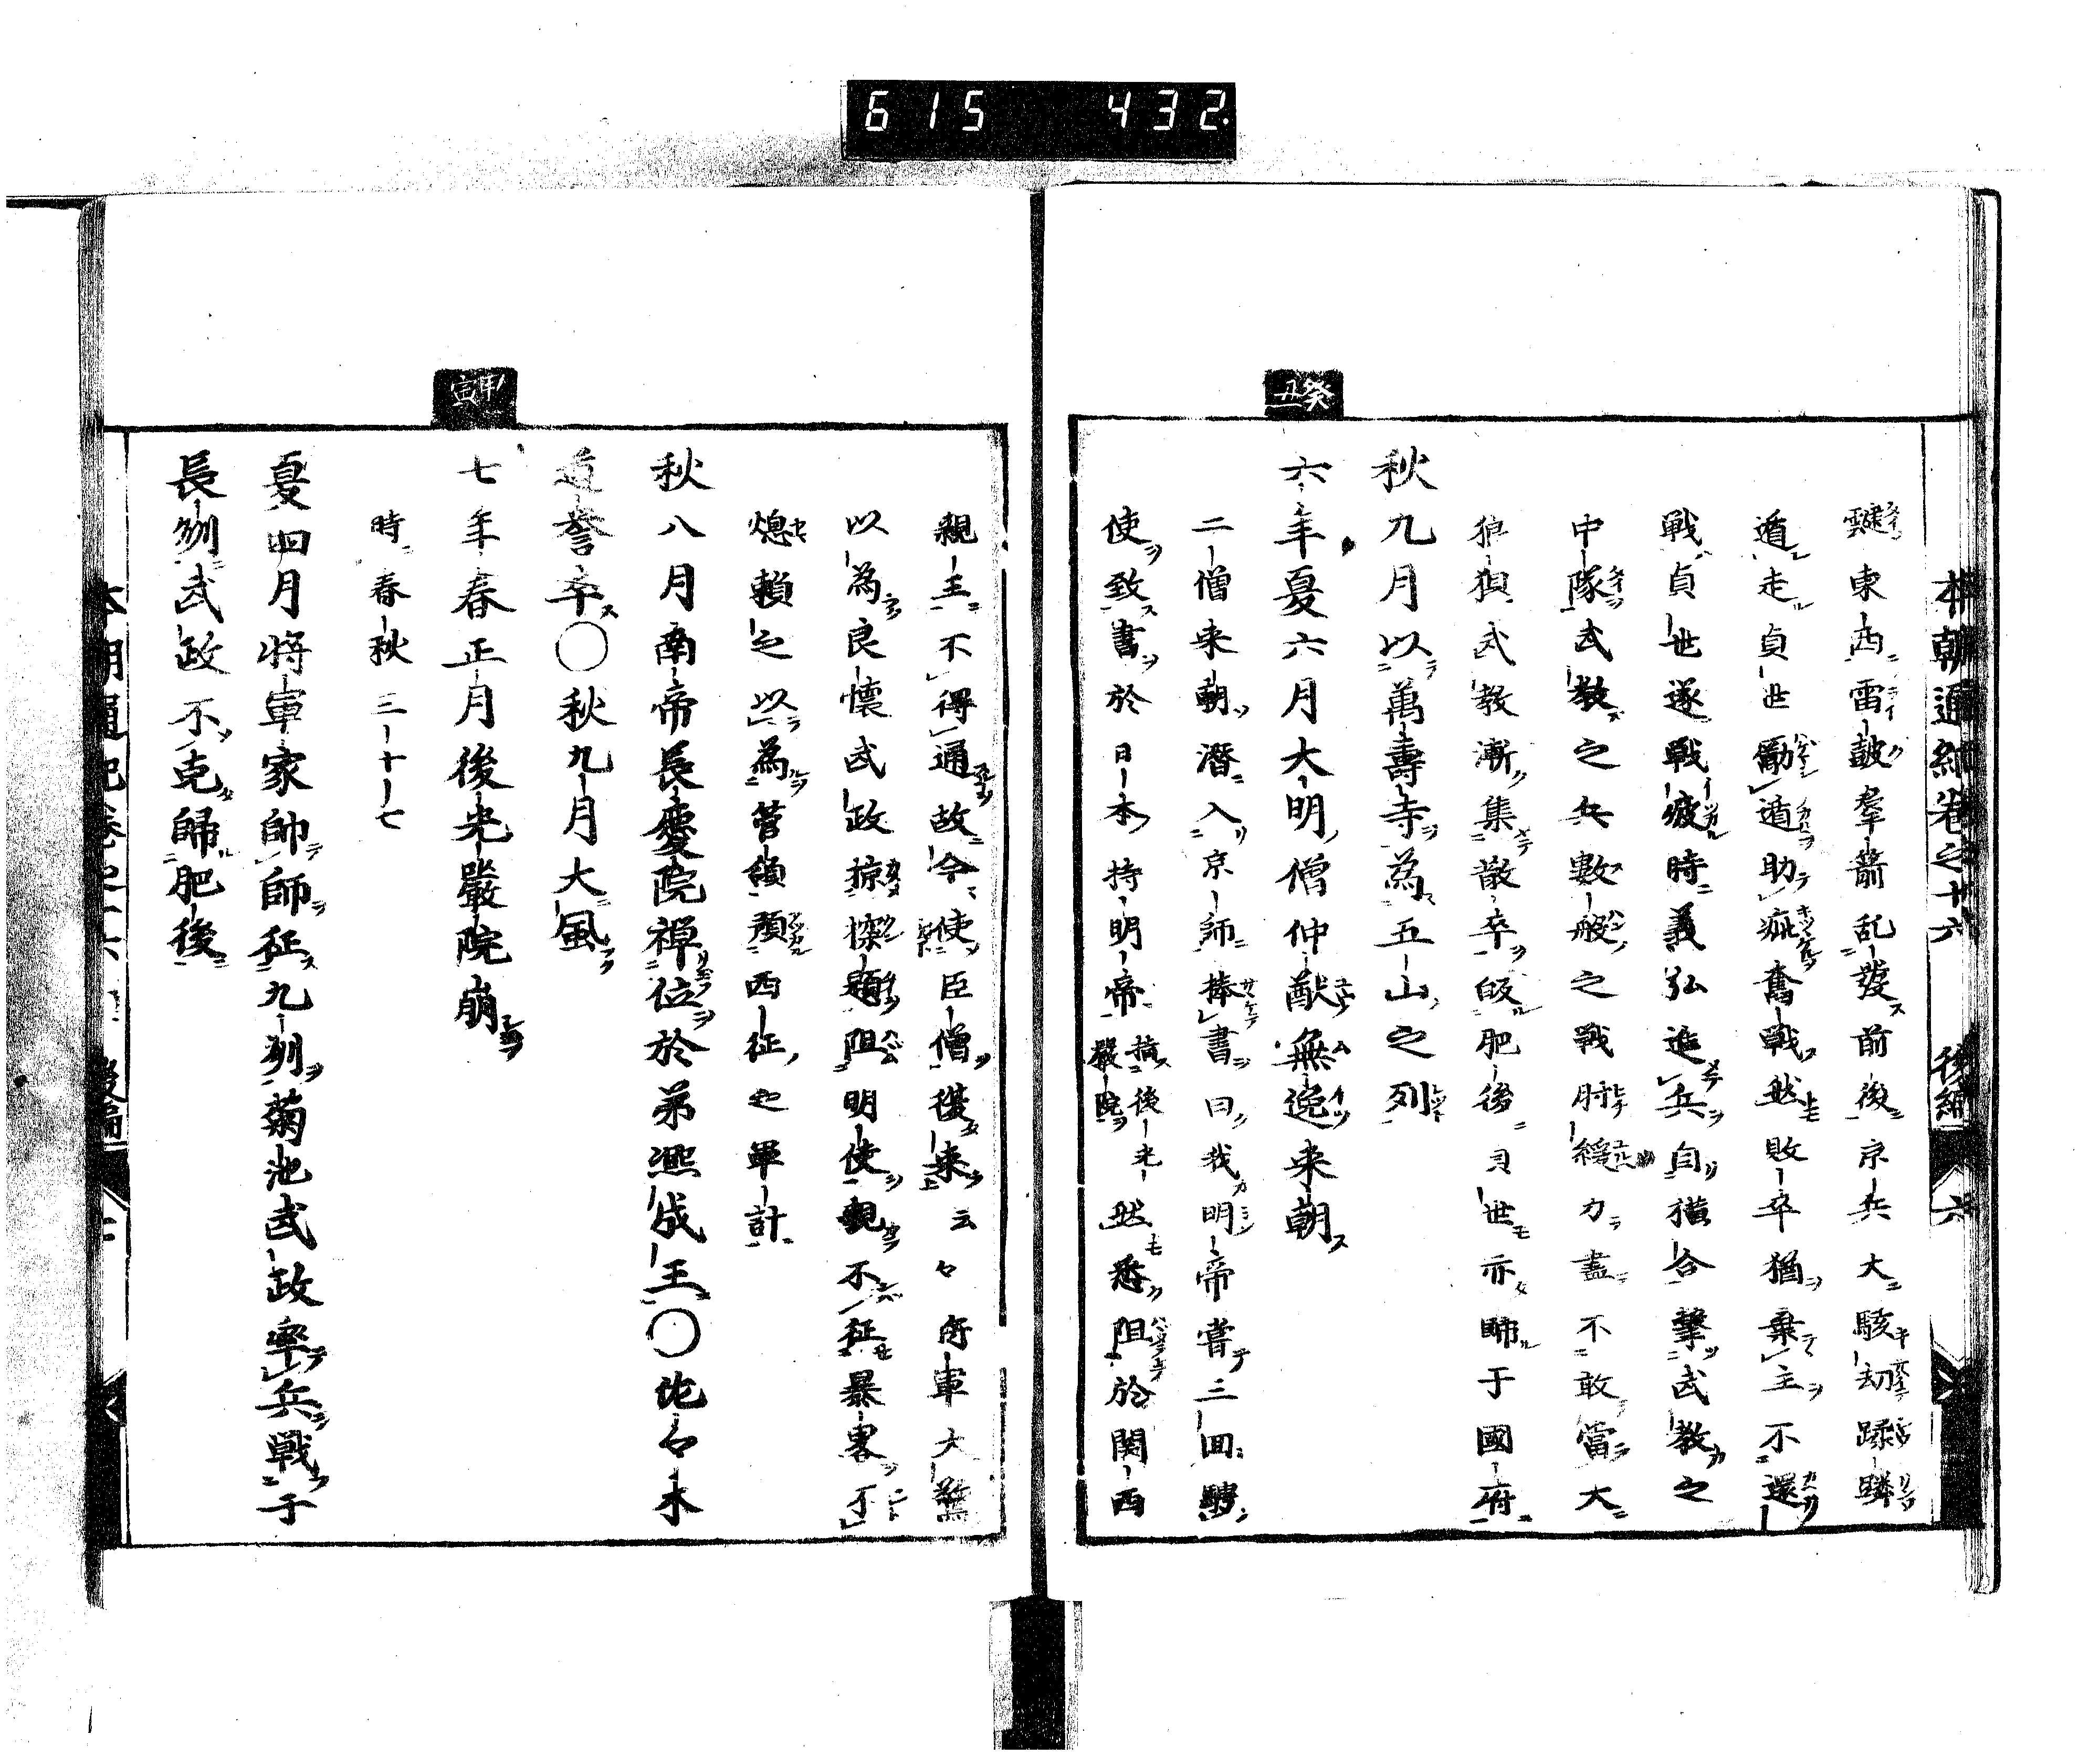 615 432.
本朝通紀卷之十六 後編 六
東西雷皷羣箭乱發前後京兵大駭劫蹂躪
遁走貞世勵遁助疵奮戰然敗卒猶棄主不還
戰貞世遂戰疲時義弘進兵自横合擊武教之
中隊武教之兵數般之戰肘緩力盡不敢當大
狼狽武教漸集散卒皈肥後貞世亦歸于國府
秋九月以萬壽寺為五山之列
癸丑
六年夏六月大明僧仲猷無逸来朝
二僧来朝潜入京師捧書曰我明帝嘗三回聘
使致書於日本持明帝指後光嚴院然悉阻於関西
親王不得通故今使臣僧復来云々將軍大驚
以為良懐武政掠掾題阻明使親不征暴畧不
熄頼之以為管領預西征之軍計
秋八月南帝長慶院禅位於弟熈成王〇佐々木
道誉卒〇秋九月大風
甲寅
七年春正月後光嚴院崩
時春秋三十七
夏四月將軍家帥師征九州菊池武政率兵戰于
長州武政不克歸肥後
本朝通紀卷之十六 後編